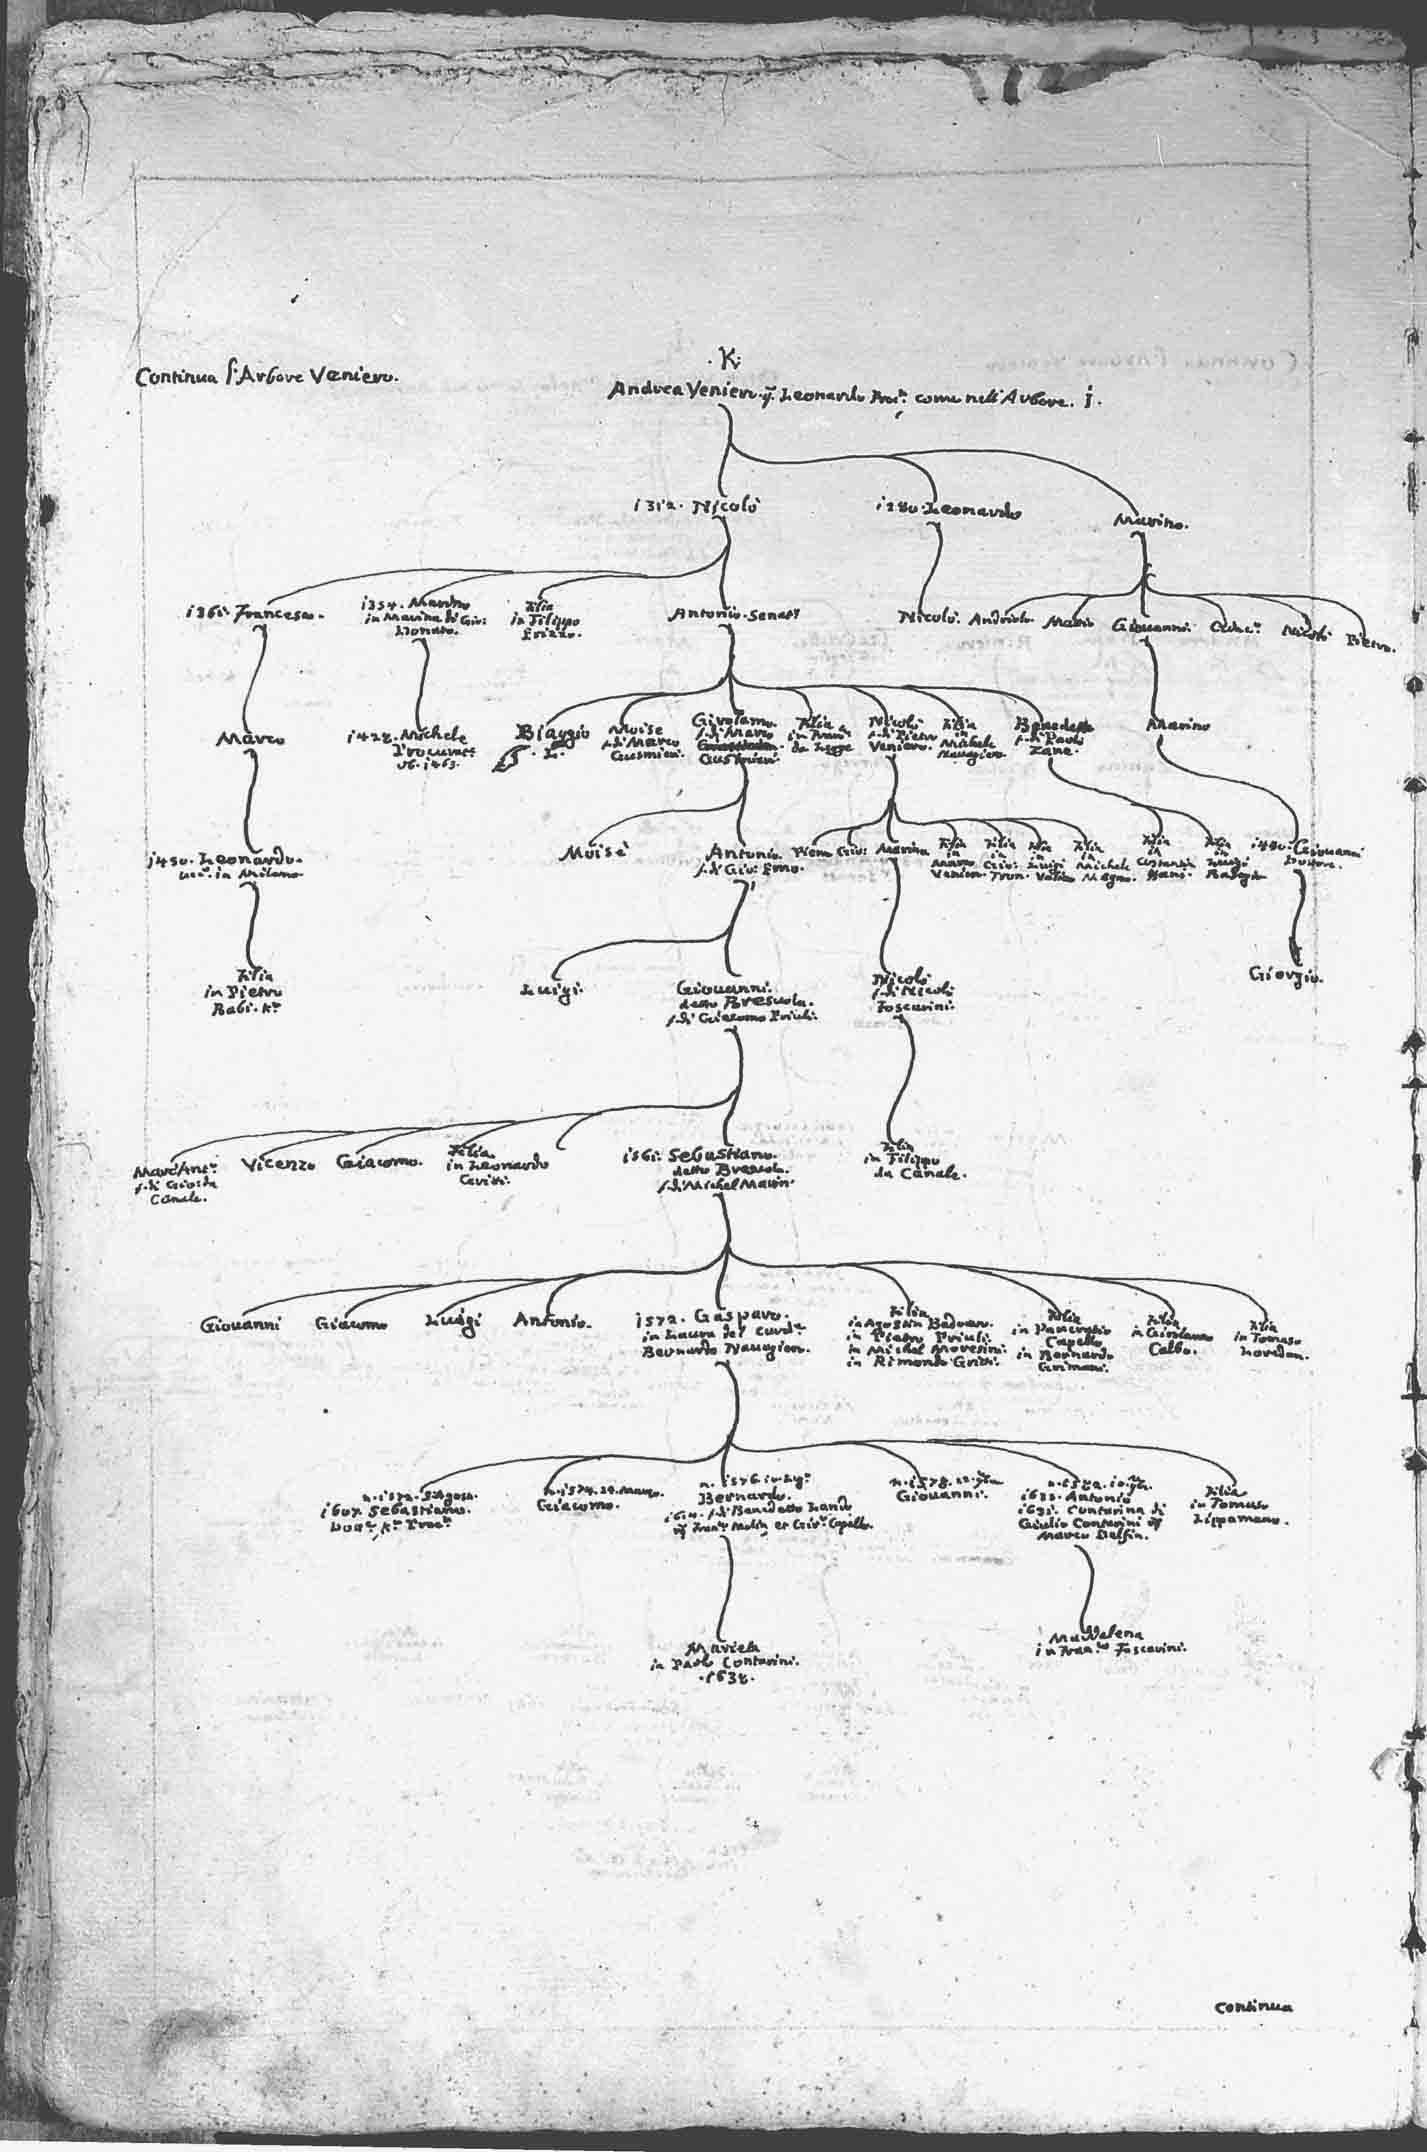 .K.
Continua l'Arbore Veniero.
Andrea Veniero q. Leonardo Proc.r come nell'Arbore. j.
1312. Nicolò
1280. Leonardo
Marino.
1361. Francesco.
1354. Marino
in Marina di Gio:
Donato.
Filia
in Filippo
Erizzo.
Antonio. Senat.r
Nicolò.
Andriolo
Mario
Giouanni
Nicolò
Pietro.
Marco
1428. Michele
Procurat.r
ob. 1463.
Biaggio
.L.
Moise
f. di Marco
Gusmieri.
Girolamo
f. di Marco
Gusmieri
Filia
in Fran.co
da Lezze
Nicolò
f. di Pietro
Veniero.
Filia
in
Michele
Nauagiero.
Benedetto
f. di Paolo
Zane.
Marino
1450. Leonardo.
in Milano
Moisè
Antonio
f. di Gio: Emo.
Piero
Gio:
Marina
Filia
in
Marco
Venier.
Filia
in
Gio:
Tron.
Filia
in
Luigi
Filia
in
Michele
Magno.
Filia
in
Costantin
Filia
in
Luigi
1480. Giouanni
Dottore.
Filia
in Pietro
Babi. K.r
Luigi.
Giouanni.
detto Bresuola.
f. di Giacomo Priuli.
Nicolò
f. di Nicolò
Foscarini.
Giorgio.
Marc'Ant.o
f. di Gio: da
Canale.
Vicenzo
Giacomo.
Filia
in Leonardo
1561. Sebastiano.
detto Bresuola.
f. di Michel Marin.
Filia
in Filippo
da Canale.
Giouanni
Giacomo
Luigi
Antonio.
1572. Gasparo.
in Laura del Caud.r
Bernardo Nauagiero.
Filia
in Agostin Badoaro.
in Pietro Priuli.
in Michel Moresini
in Rimondo Gritti.
Filia
in Pancratio
Capello
in Bernardo
Grimani.
Filia
in Girolamo
Calbo.
Filia
in Tomaso
Loredan.
n. 1573. Agosto.
1607. Sebastiano.
K.r Proc.r
n. 1574. 24. Marzo.
Giacomo.
n. 1576.
Bernardo.
f. di Benedetto Lando
n. 1578. 12.
Giouanni.
Antonio
1631. Contarina di
Giulio Contarini
Marco Delfin.
Filia
in Tomaso
Lippomano.
Marieta
in Paolo Contarini.
.1638.
Maddalena
in Fran.co Foscarini.
continua